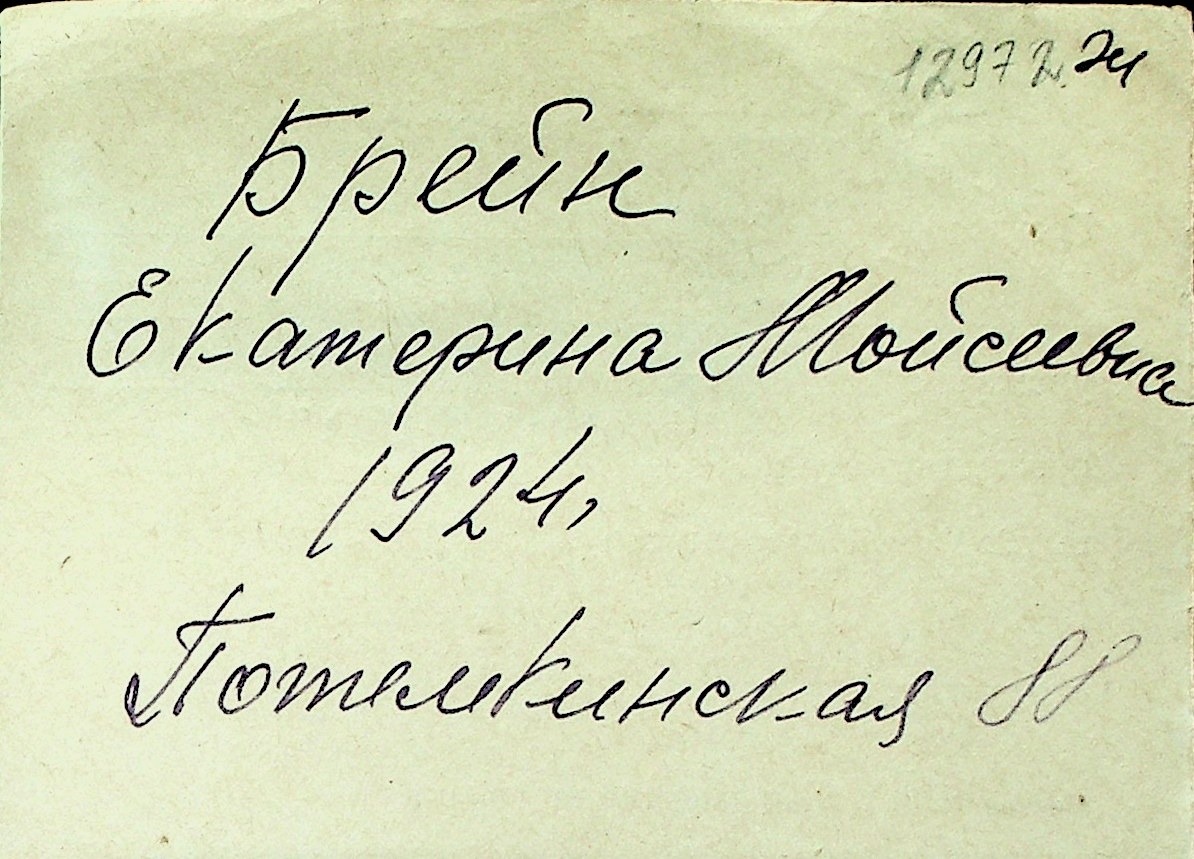 12972
Брейн
Екатерина Мойсеевна
1924,
Потемкинская 88